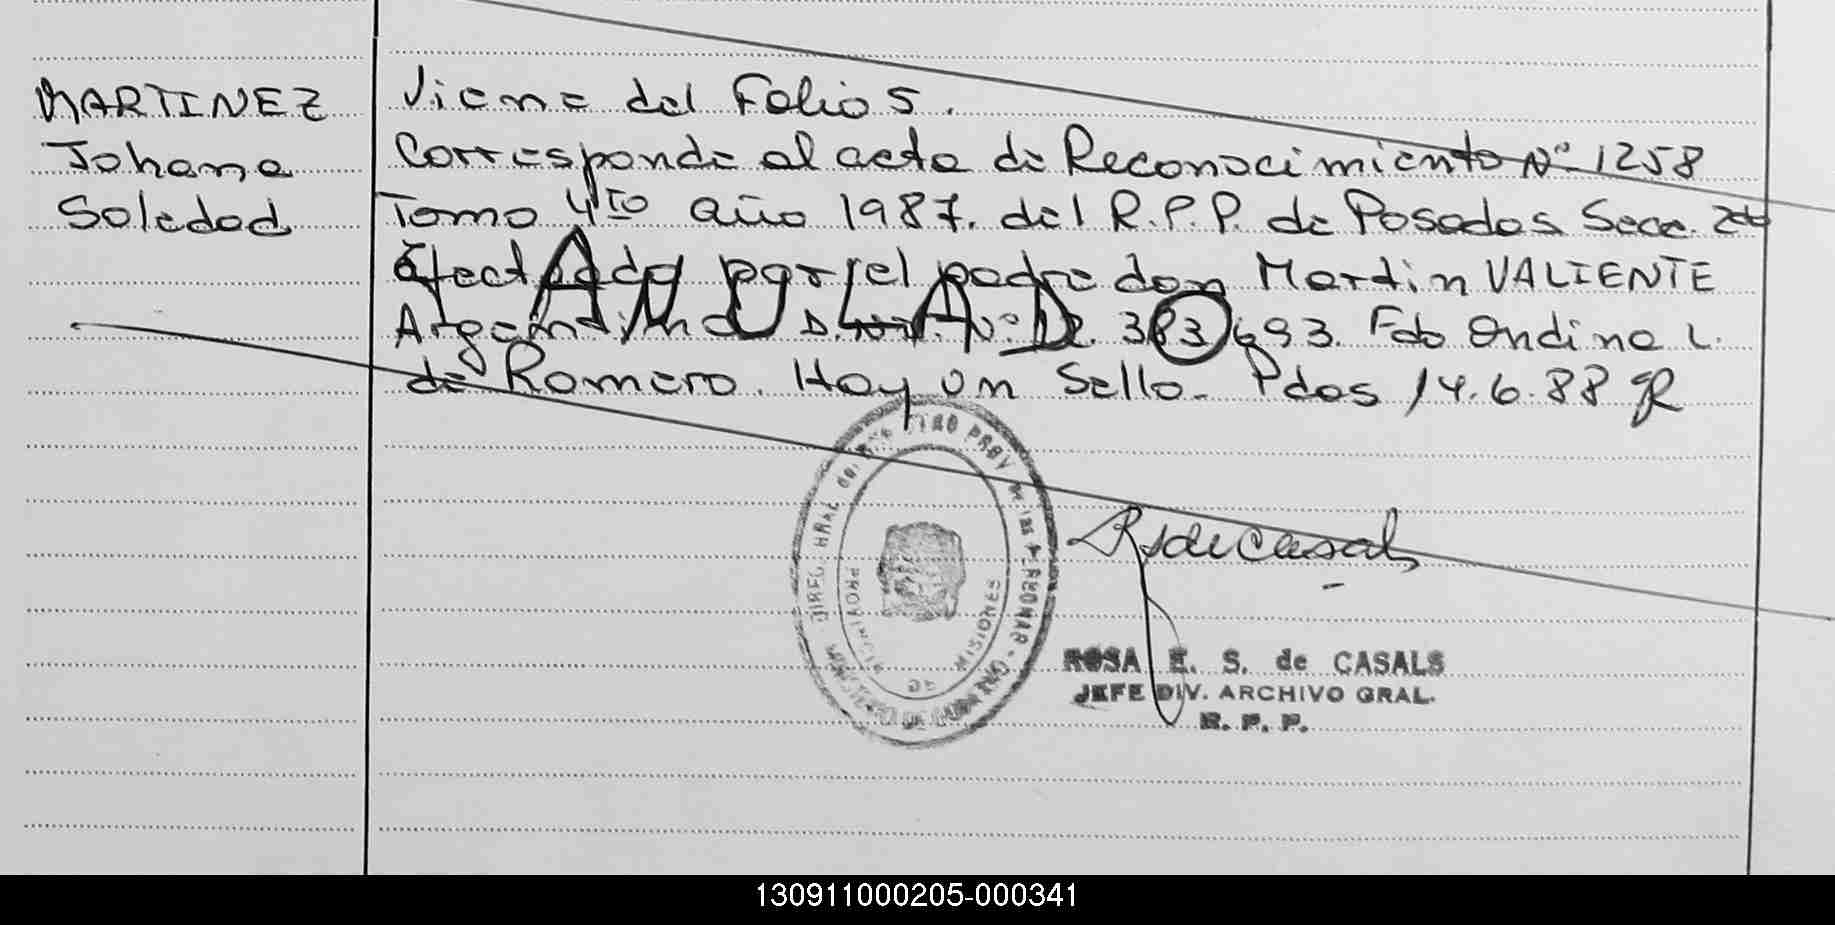 MARTINEZ
Johana
Soledad
Viene del Folio 5.
Corresponde al acta de Reconocimiento Nº 1258
Tomo 4to año 1987. del R.P.P. de Posadas Secc. 2da
Efectuado por el padre don Martin VALIENTE
Argentino D. Nº 12. 383 693. Fdo Ondina L.
de Romero. Hay un Sello. Pdas 14.6.88
ANULADO
PROVINCIA
DE
MISIONES
ROSA E. S. de CASALS
JEFE DIV. ARCHIVO GRAL.
R. P. P.
130911000205-000341